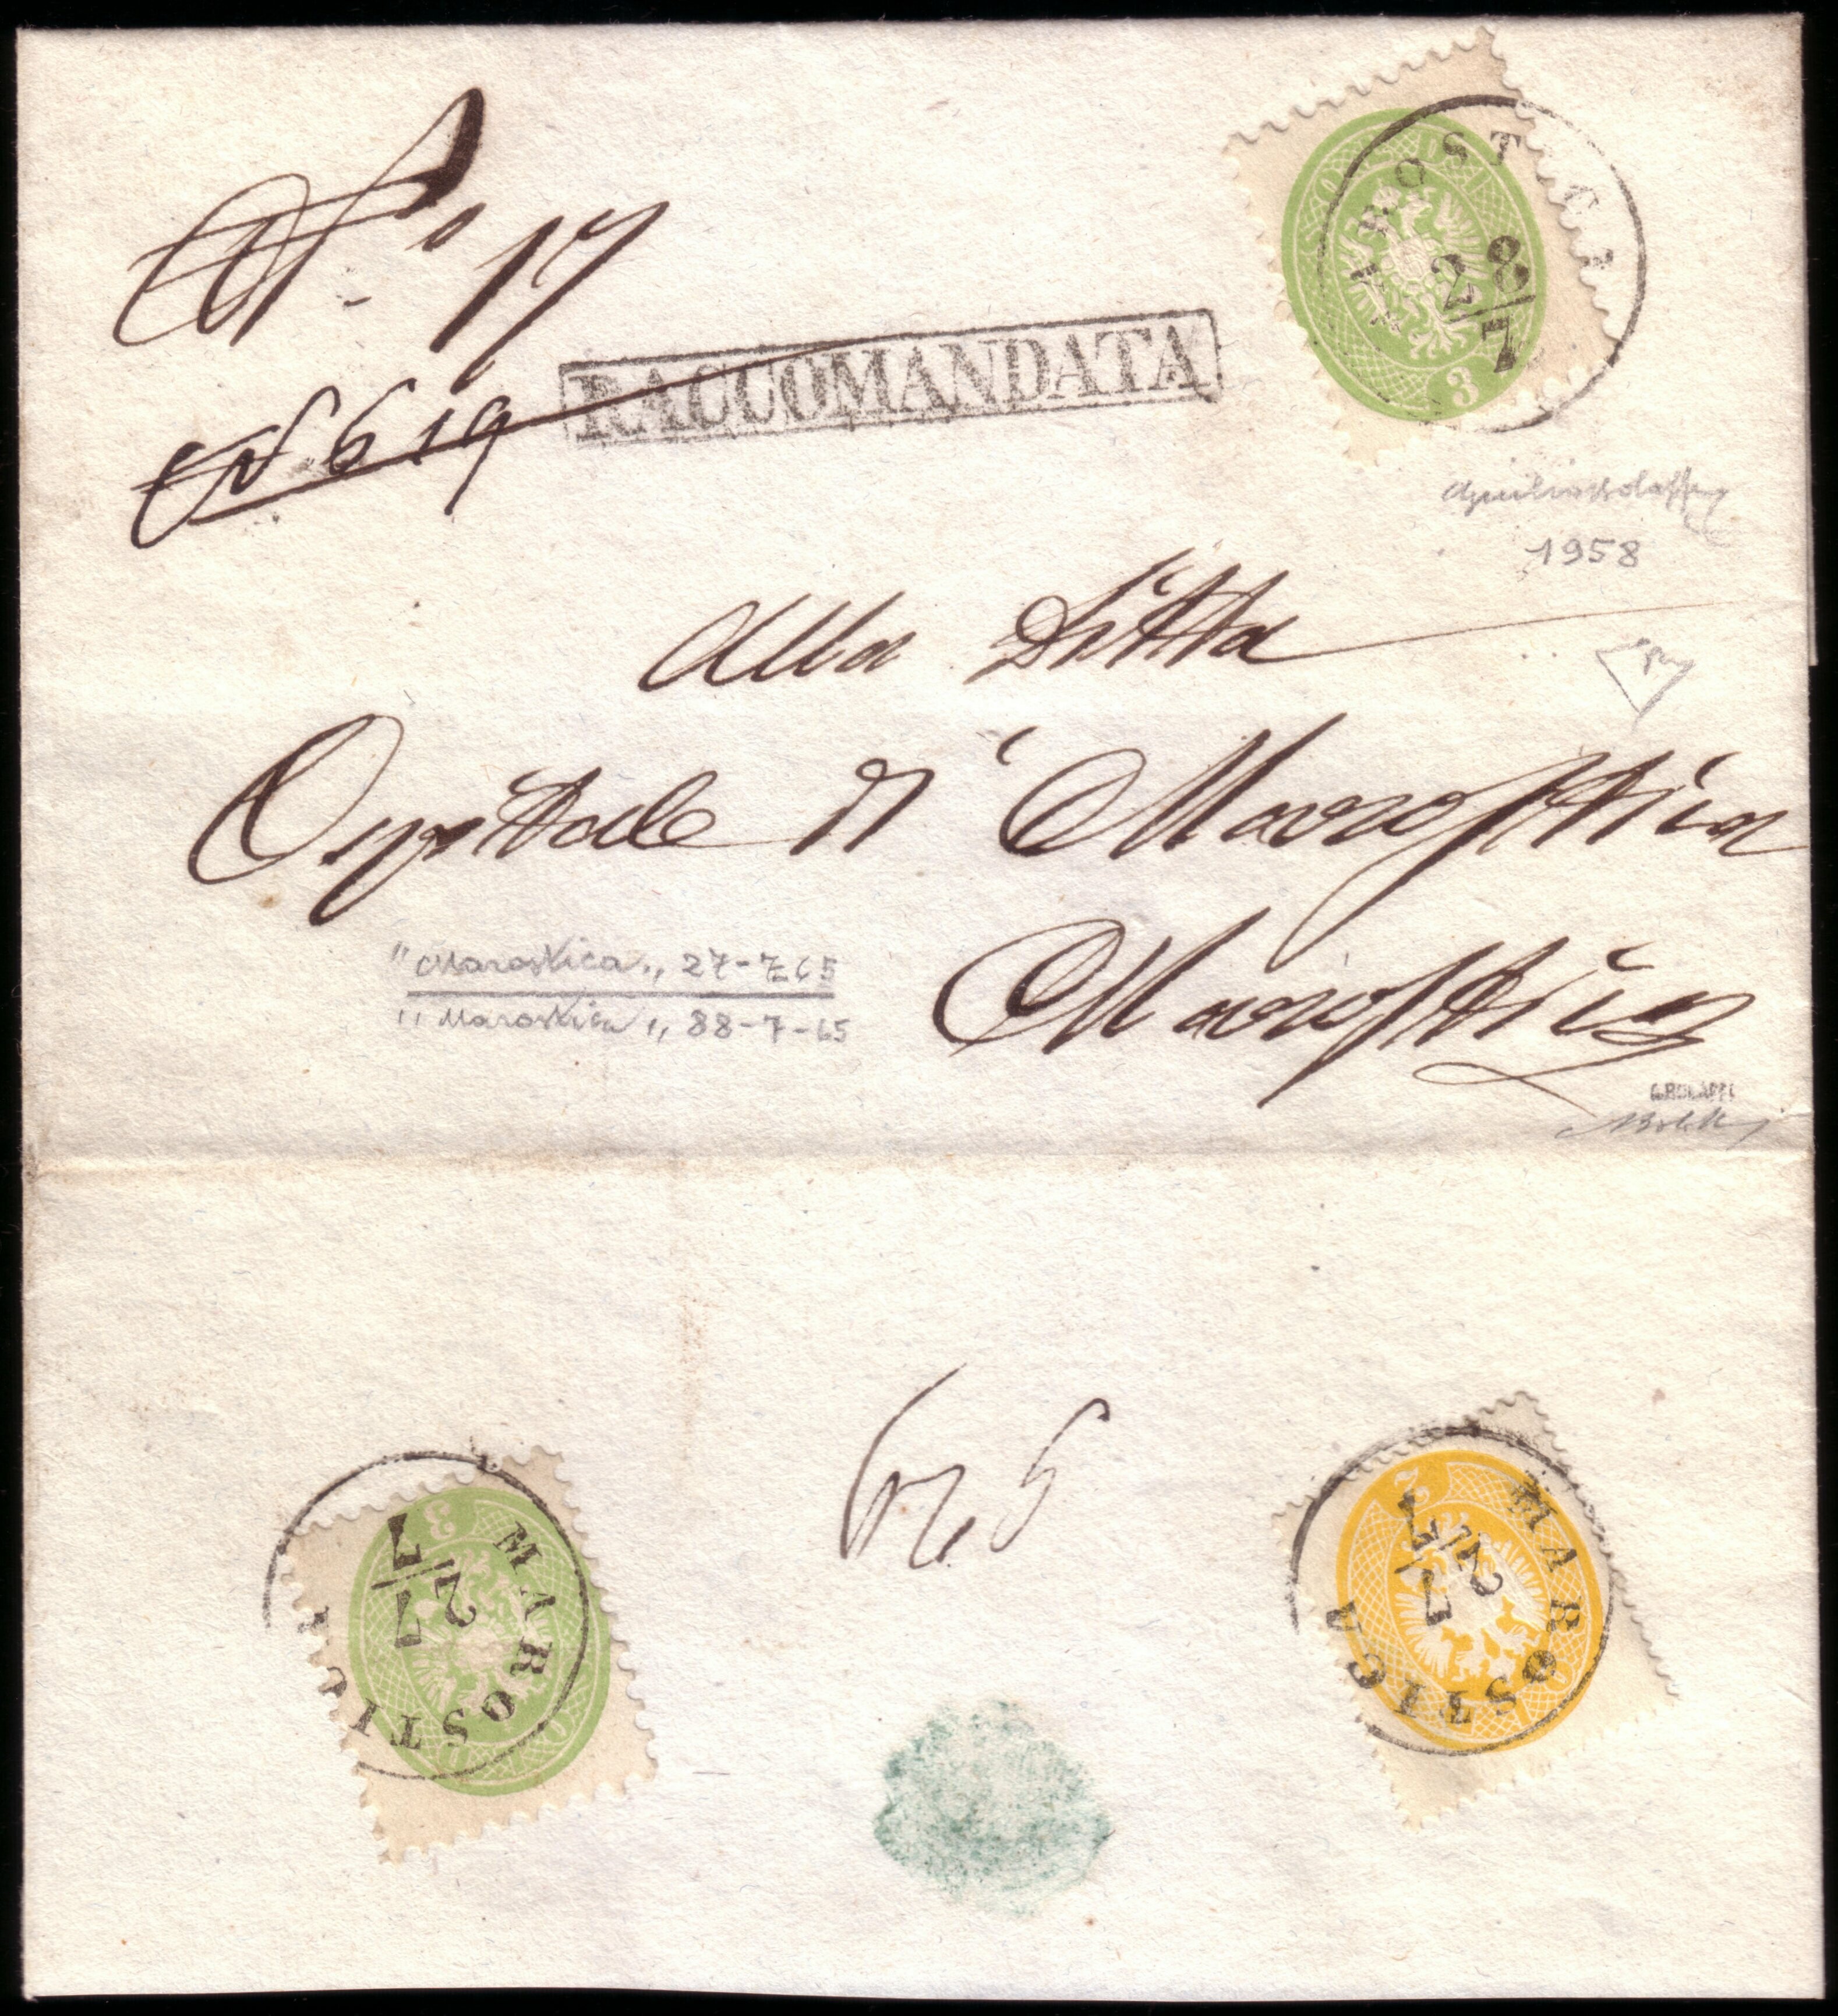 N.° 17
N 619
RACCOMANDATA
ROSTICA
28
7
3
1958
Alla Ditta
Ospitale di Marostica
"Marostica„ 27-7-65
"Marostica„ 88-7-65
Marostica
G.BOLAFFI
3
MAROSTICA
27
7
2
MAROSTICA
27
7